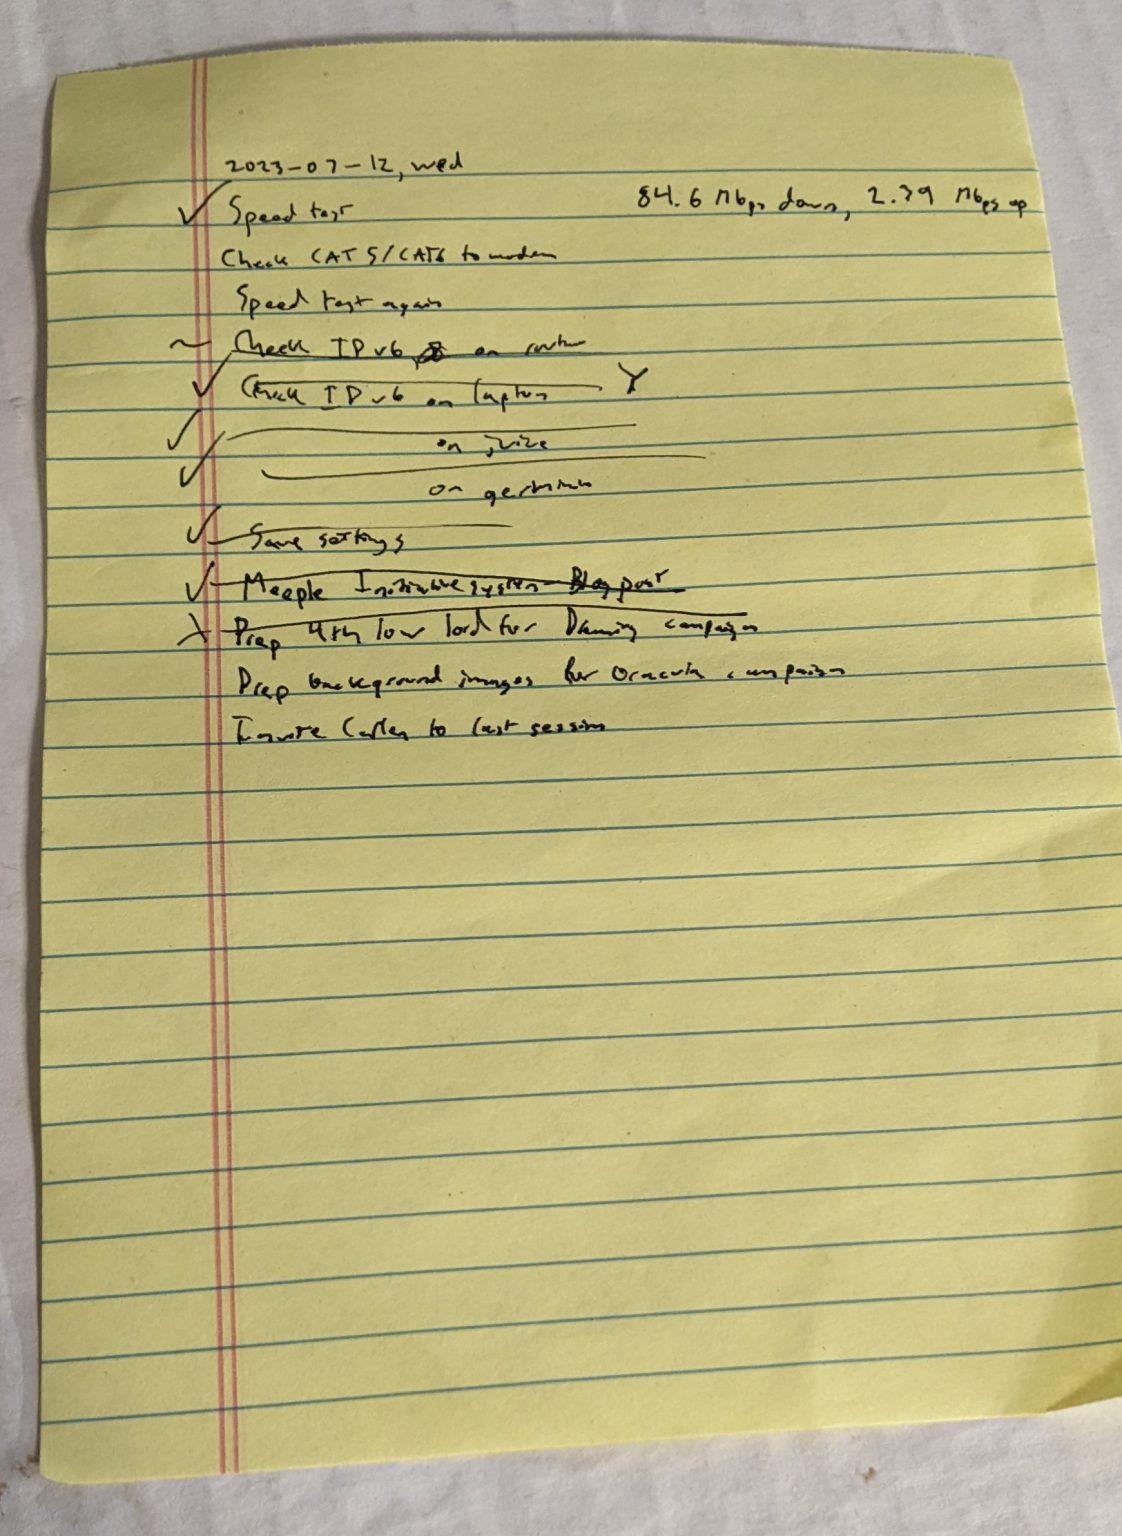 2023-07-12, Wed
✓ Speed test 84.6 Mbps down, 2.39 Mbps up
Check CAT5/CAT6 to modem
Speed test again
~ Check IPv6 on router
✓ Check IPv6 on laptop Y
✓ on juice
✓ on
✓ Save settings
✓ Meeple Initiative system Blog post
X Prep 4th low lord for campaign
Prep background images for campaign
Invite to last session